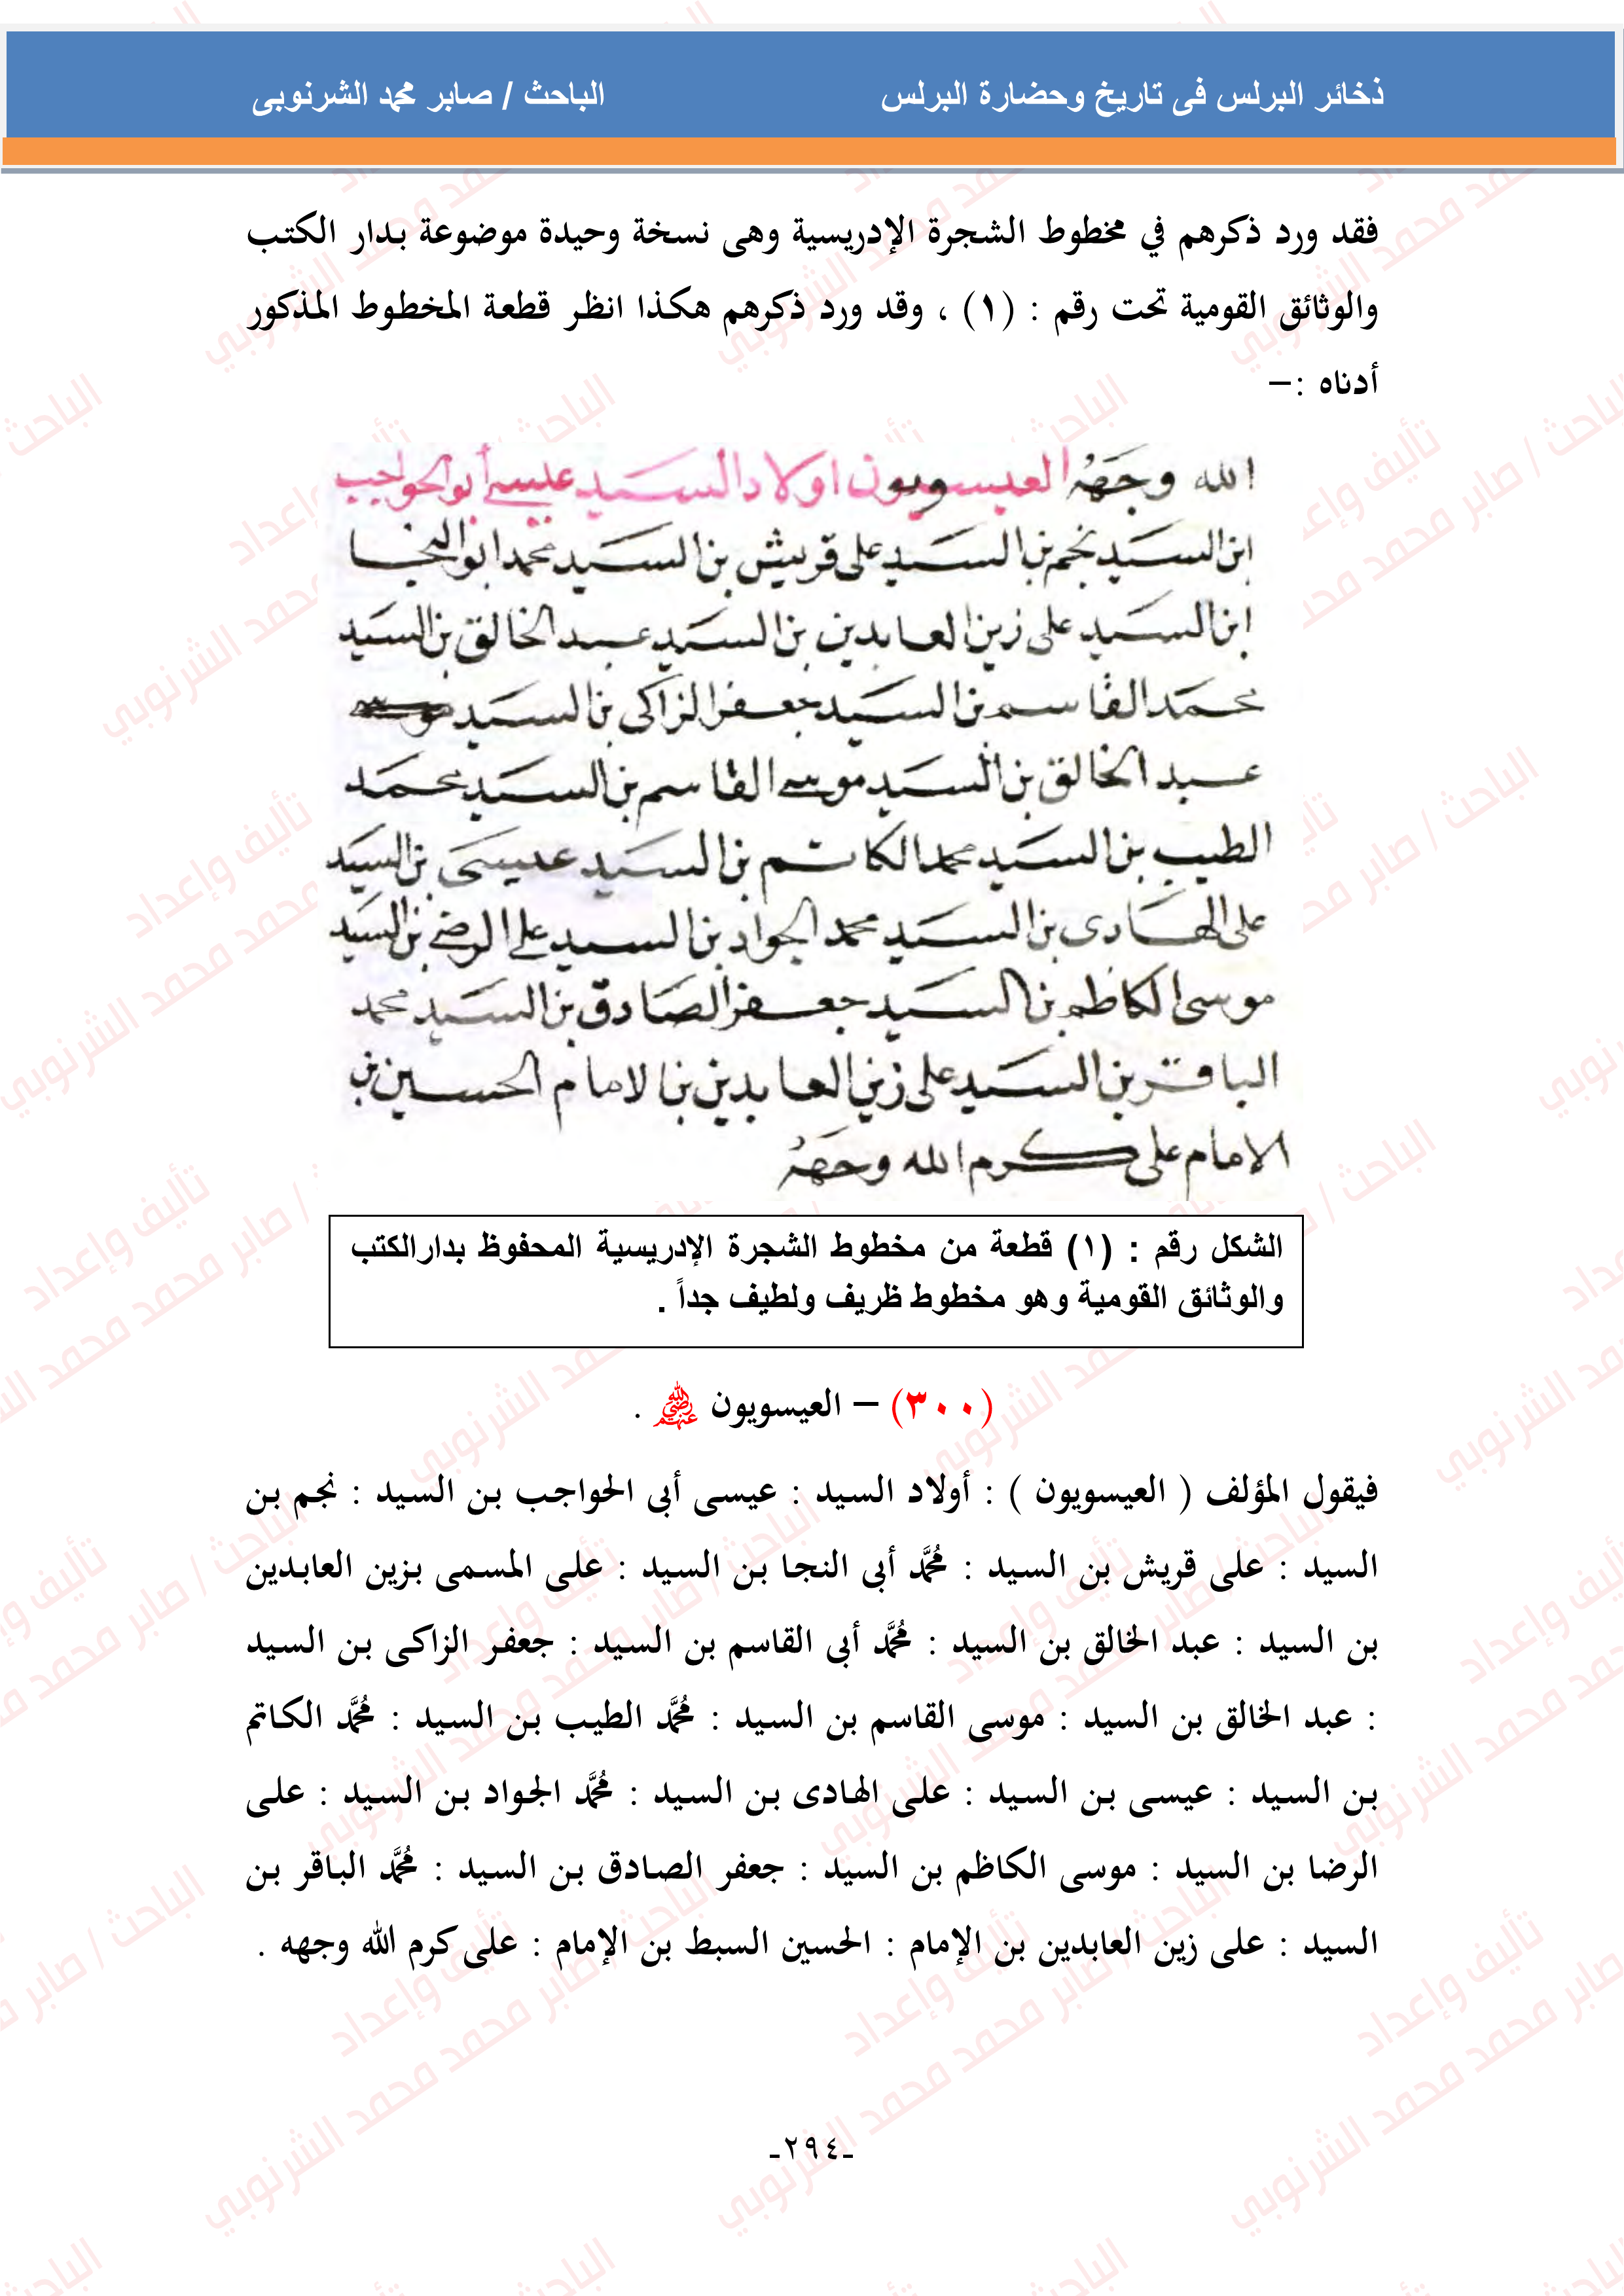 ذخائر البرلس فى تاريخ وحضارة البرلس الباحث / صابر محمد الشرنوبى
فقد ورد ذكرهم في مخطوط الشجرة الإدريسية وهى نسخة وحيدة موضوعة بدار الكتب
والوثائق القومية تحت رقم : (١) ، وقد ورد ذكرهم هكذا انظر قطعة المخطوط المذكور
أدناه :–
الله وجهه العيسويون اولاد السيد عيسى أبو الحواجب
ابن السيد نجم بن السيد على قريش بن السيد محمد ابو النجا
ابن السيد على زين العابدين بن السيد عبد الخالق بن السيد
محمد القاسم بن السيد جعفر الزاكى بن السيد موسى
عبد الخالق بن السيد موسى القاسم بن السيد محمد
الطيب بن السيد محمد الكاتم بن السيد عيسى بن السيد
على الهادى بن السيد محمد الجواد بن السيد على الرضى بن السيد
موسى الكاظم بن السيد جعفر الصادق بن السيد محمد
الباقر بن السيد على زين العابدين بن الامام الحسين بن
الامام على كرم الله وجهه
الشكل رقم : (١) قطعة من مخطوط الشجرة الإدريسية المحفوظ بدارالكتب
والوثائق القومية وهو مخطوط ظريف ولطيف جداً .
(٣٠٠) – العيسويون رضي الله عنهم .
فيقول المؤلف ( العيسويون ) : أولاد السيد : عيسى أبى الحواجب بن السيد : نجم بن
السيد : على قريش بن السيد : مُحمَّد أبى النجا بن السيد : على المسمى بزين العابدين
بن السيد : عبد الخالق بن السيد : مُحمَّد أبى القاسم بن السيد : جعفر الزاكى بن السيد
: عبد الخالق بن السيد : موسى القاسم بن السيد : مُحمَّد الطيب بن السيد : مُحمَّد الكاتم
بن السيد : عيسى بن السيد : على الهادى بن السيد : مُحمَّد الجواد بن السيد : على
الرضا بن السيد : موسى الكاظم بن السيد : جعفر الصادق بن السيد : مُحمَّد الباقر بن
السيد : على زين العابدين بن الإمام : الحسين السبط بن الإمام : على كرم الله وجهه .
-٢٩٤-
تأليف وإعداد
الباحث / صابر محمد محمد الشرنوبي